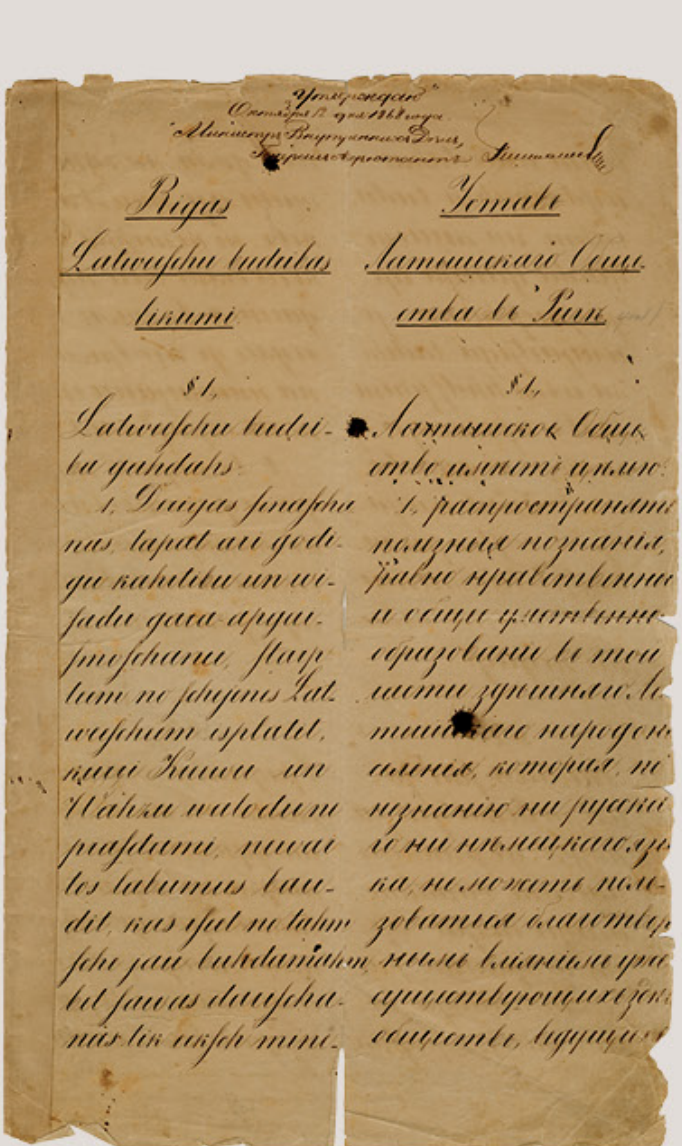 "Утверждаю"
Октября 12 дня 1868 года.
"Министръ Внутреннихъ Дѣлъ,
Тимашевъ
Rigas
Latweeschu beedribas
likumi.
§ 1,
Latweeschu beedri-
ba gahdahs
1, Derigas sinascha-
nas, tapat ari godi-
gu kahrtibu un wi-
sadu gara apgai-
smoschanu, starp
teem no schejenes Lat-
weescheem isplatit,
kuri Kreewu un
Wahzu walodu ne
prasdami, newar
tos labumus bau-
dit, kas iseet no tahm
sche jau buhdamahm
bet sawas daroscha-
nas tik eeksch
Уставъ
Латышскаго Обще-
ства въ Ригѣ
§ 1,
Латышское Обще-
ство имѣетъ цѣлію:
1, распространять
полезныя познанія,
равно нравственное
и общее умственное
образованіе въ той
части здѣшняго Ла-
тышскаго народона-
селенія, которая, по
незнанію ни русска-
го ни нѣмецкаго язы-
ка, не можетъ поль-
зоваться благотвор-
нымъ вліяніемъ уже
существующихъ здѣсь
обществъ, ведущихъ